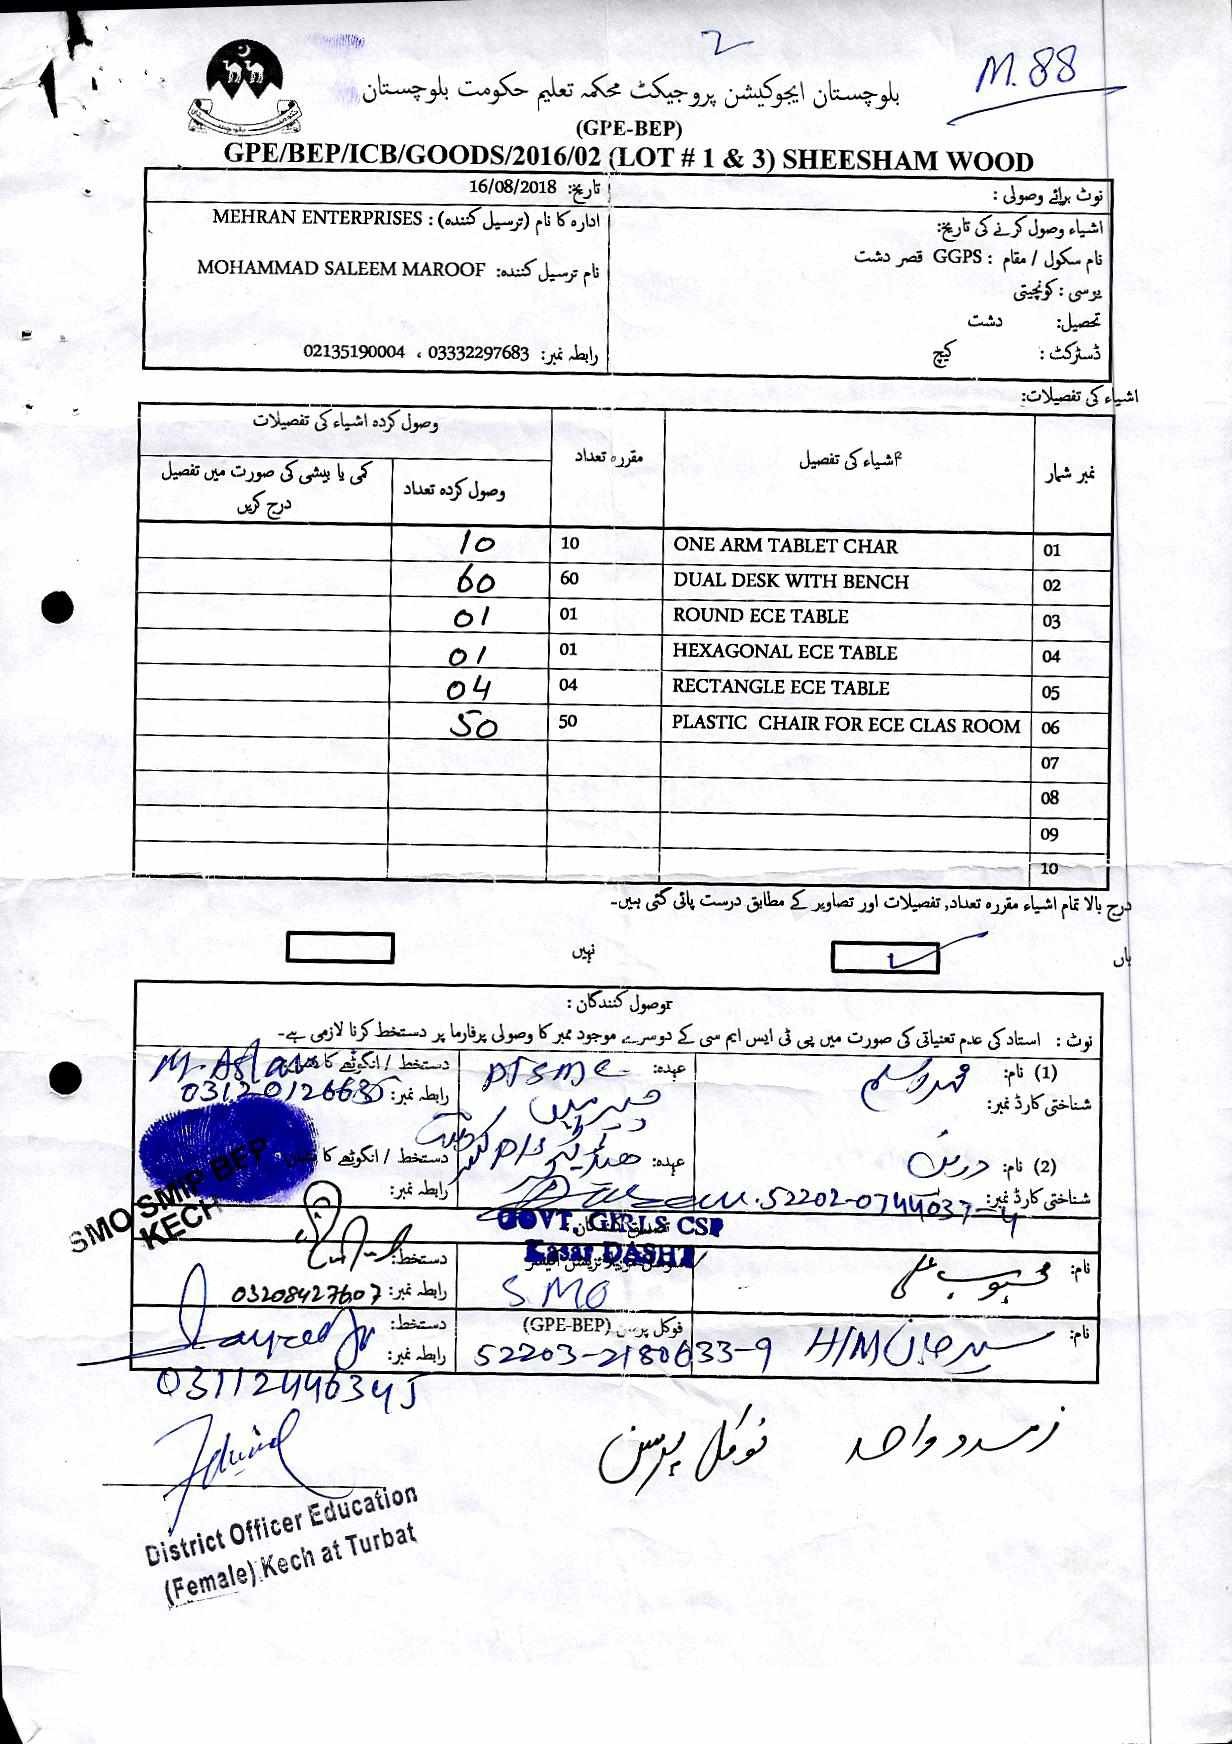 2
M.88
بلوچستان ایجوکیشن پروجیکٹ محکمہ تعلیم حکومت بلوچستان
(GPE-BEP)
GPE/BEP/ICB/GOODS/2016/02 (LOT # 1 & 3) SHEESHAM WOOD
نوٹ برائے وصولی :
تاریخ: 16/08/2018
اشیاء وصول کرنے کی تاریخ:
ادارہ کا نام (ترسیل کنندہ) : MEHRAN ENTERPRISES
نام سکول / مقام : GGPS قصر دشت
نام ترسیل کنندہ: MOHAMMAD SALEEM MAROOF
یوسی : کونچیتی
تحصیل: دشت
ڈسٹرکٹ : کیچ
رابطہ نمبر: 03332297683 ، 02135190004
اشیاء کی تفصیلات:
نمبر شمار اشیاء کی تفصیل مقررہ تعداد وصول کردہ اشیاء کی تفصیلات
وصول کردہ تعداد کمی یا بیشی کی صورت میں تفصیل درج کریں
01 ONE ARM TABLET CHAR 10 10
02 DUAL DESK WITH BENCH 60 60
03 ROUND ECE TABLE 01 01
04 HEXAGONAL ECE TABLE 01 01
05 RECTANGLE ECE TABLE 04 04
06 PLASTIC CHAIR FOR ECE CLAS ROOM 50 50
07
08
09
10
درج بالا تمام اشیاء مقررہ تعداد, تفصیلات اور تصاویر کے مطابق درست پائی گئی ہیں۔
ہاں نہیں
وصول کنندگان :
نوٹ : استاد کی عدم تعیناتی کی صورت میں پی ٹی ایس ایم سی کے دوسرے موجود ممبر کا وصولی پرفارما پر دستخط کرنا لازمی ہے۔
(1) نام: عہدہ: PTSMC دستخط / انگوٹھے کا M. Aslam
شناختی کارڈ نمبر: چیرمین رابطہ نمبر:
(2) نام: عہدہ: دستخط / انگوٹھے کا
شناختی کارڈ نمبر: 52202-0744037-4 رابطہ نمبر:
SMO SMIP BEP
KECH
GOVT. GIRLS CSP
Kasar DASHT
نام: محبوب علی SMO دستخط:
رابطہ نمبر: 03208427607
نام: H/M فوکل پرسن (GPE-BEP) دستخط:
52203-2180633-9 رابطہ نمبر:
03112446345
زمرد واحد فوکل پرسن
District Officer Education
(Female) Kech at Turbat